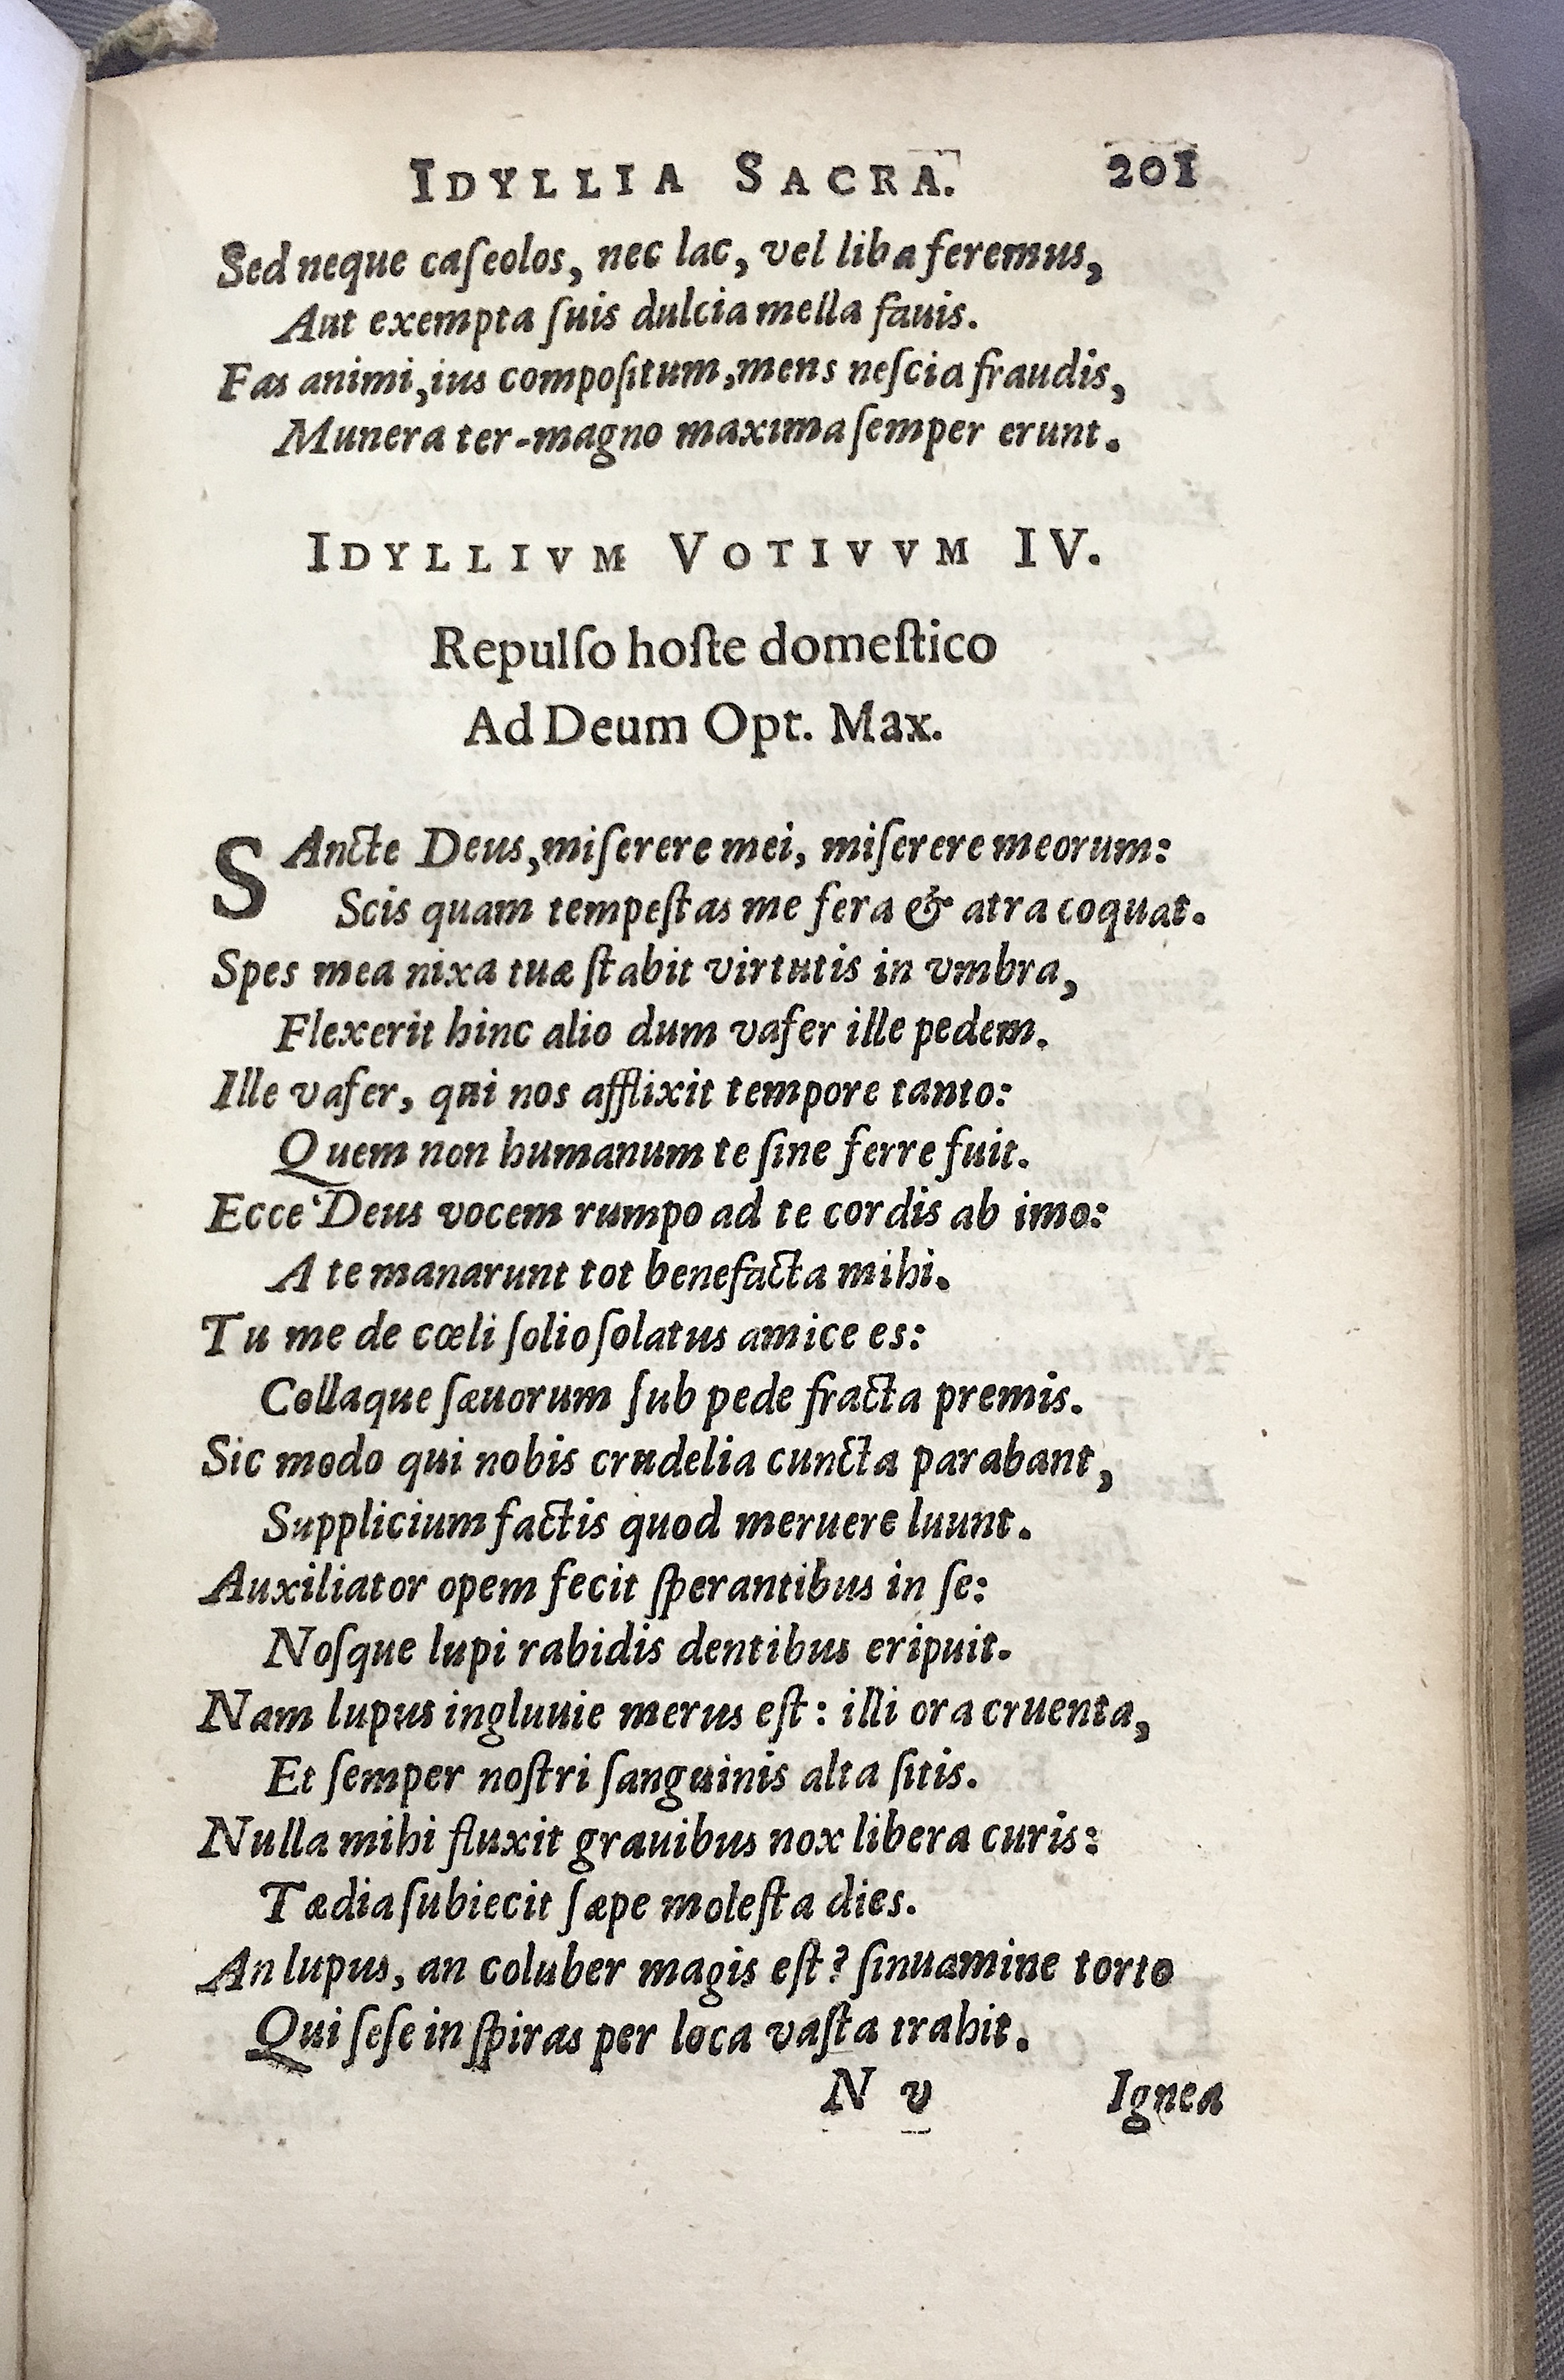 IDYLLIA SACRA. 201
Sed neque caſeolos, nec lac, vel liba feremus,
Aut exempta ſuis dulcia mella fauis.
Fas animi, ius compoſitum, mens neſcia fraudis,
Munera ter-magno maxima ſemper erunt.
IDYLLIVM VOTIVVM IV.
Repulſo hoſte domeſtico
Ad Deum Opt. Max.
SAncte Deus, miſerere mei, miſerere meorum:
Scis quam tempeſtas me fera & atra coquat.
Spes mea nixa tuæ ſtabit virtutis in vmbra,
Flexerit hinc alio dum vafer ille pedem.
Ille vafer, qui nos afflixit tempore tanto:
Quem non humanum te ſine ferre fuit.
Ecce Deus vocem rumpo ad te cordis ab imo:
A te manarunt tot benefacta mihi.
Tu me de cœli ſolio ſolatus amice es:
Collaque ſæuorum ſub pede fracta premis.
Sic modo qui nobis crudelia cuncta parabant,
Supplicium factis quod meruere luunt.
Auxiliator opem fecit ſperantibus in ſe:
Noſque lupi rabidis dentibus eripuit.
Nam lupus ingluuie merus eſt: illi ora cruenta,
Et ſemper noſtri ſanguinis alta ſitis.
Nulla mihi fluxit grauibus nox libera curis:
Tædia ſubiecit ſæpe moleſta dies.
An lupus, an coluber magis eſt? ſinuamine torto
Qui ſeſe in ſpiras per loca vaſta trahit.
N v Ignea